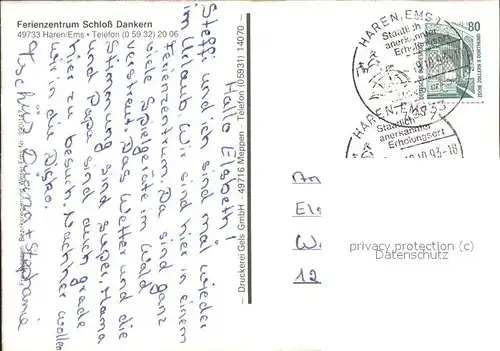 Ferienzentrum Schloß Dankern
49733 Haren/Ems • Telefon (0 59 32) 20 06
Hallo Elsbeth!
Steffi und ich sind mal wieder
im Urlaub. Wir sind hier in einem
Ferienzentrum. Da sind ganz
viele Spielgeräte im Wald
verstreut. Das Wetter und die
Stimmung sind super. Mama
und Papa sind auch grade
hier zu besuch. Nachher wollen
wir in die Disko.
Tschüß + Stephanie
– Druckerei Gels GmbH - 49716 Meppen - Telefon (05931) 14070 –
HAREN, EMS 1
Staatlich
anerkannter
Erholungsort
80
ZECHE ZOLLERN II DORTMUND
HAREN, EMS
Staatlich
anerkannter
Erholungsort
.10.93-18
El
W
12
privacy protection (c)
Datenschutz